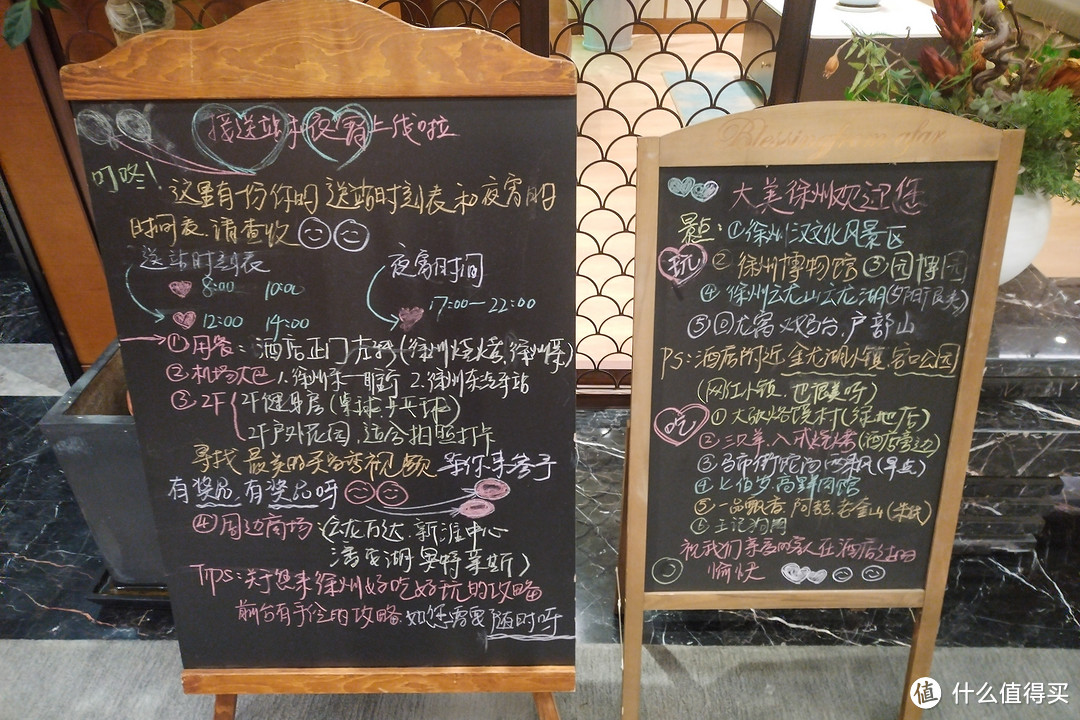 接送站和夜宵上线啦
叮咚！
这里有份你的送站时刻表和夜宵的
时间表.请查收
送站时刻表
8:00 10:00
12:00 14:00
夜宵时间
17:00—22:00
①用餐：酒店正门左转(徐州烧烤,徐州菜)
②机场大巴 1.徐州东一 2.徐州东汽车站
③.2F
2F健身房(桌球乒乓球)
2F户外花园,适合拍照打卡
寻找最美的 视频 等你来参予
有奖品,有奖品呀
④周边商场 云龙万达.新淮中心
潘安湖奥特莱斯)
Tips:关于您来徐州好吃好玩的攻略
前台有手绘的攻略.如您需要随时呀
Blessing
大美徐州欢迎您
景点:①徐州汉文化风景区
玩
②徐州博物馆 ③园博园
④徐州云龙山云龙湖(夕阳)
⑤回龙窝戏马台.户部山
PS:酒店附近金龙湖小镇,宕口公园
(网红小镇,也很美呀)
吃
①大队烙馍村(绿地店)
②三只羊.入戏烧烤(酒店旁边)
③马市街 (早点)
④七佰岁.高鲜肉馆
⑤一品飘香 金山
祝我们亲爱的家人在酒店
愉快
值 什么值得买